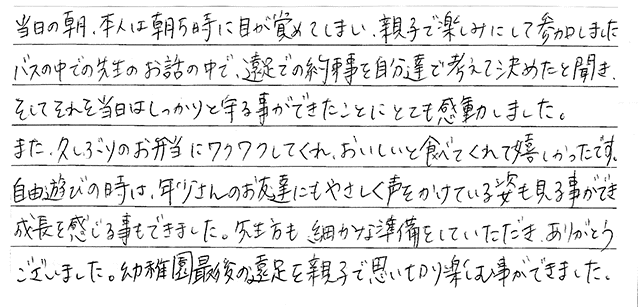 当日の朝、本人は朝5時に目が覚めてしまい、親子で楽しみにして参加しました
バスの中での先生のお話の中で、遠足での約束事を自分達で考えて決めたと聞き、
そしてそれを当日はしっかりと守る事ができたことにとても感動しました。
また、久しぶりのお弁当にワクワクしてくれ、おいしいと食べてくれて嬉しかったです。
自由遊びの時は、年少さんのお友達にもやさしく声をかけている姿も見る事ができ
成長を感じる事もできました。先生方も細かな準備をしていただき、ありがとう
ございました。幼稚園最後の遠足を親子で思いっきり楽しむ事ができました。